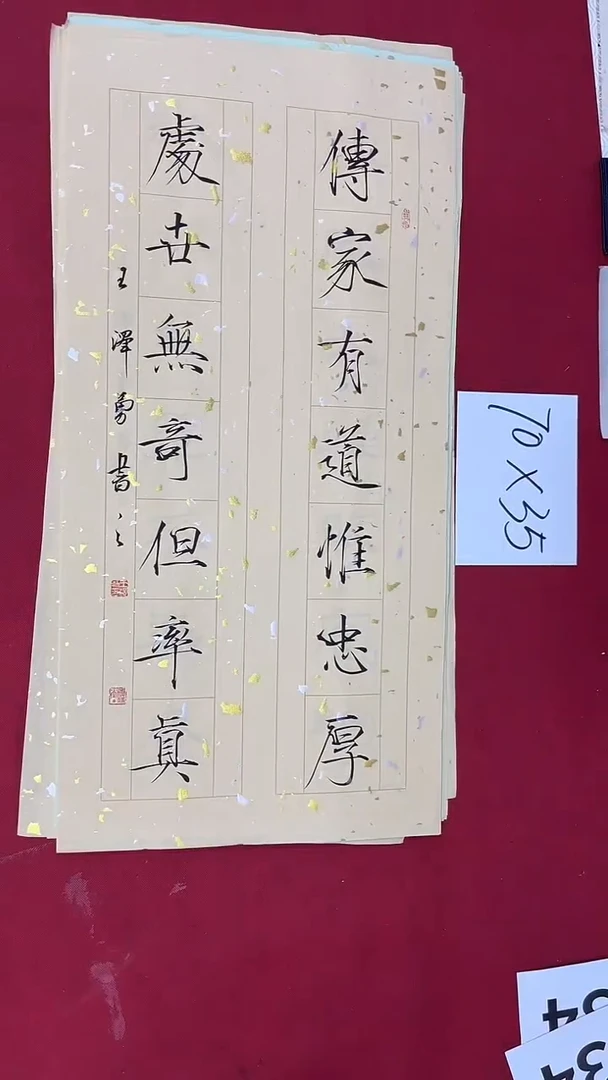 傳家有道惟忠厚
處世無奇但率真
王澤勇書之
70×35
34
34